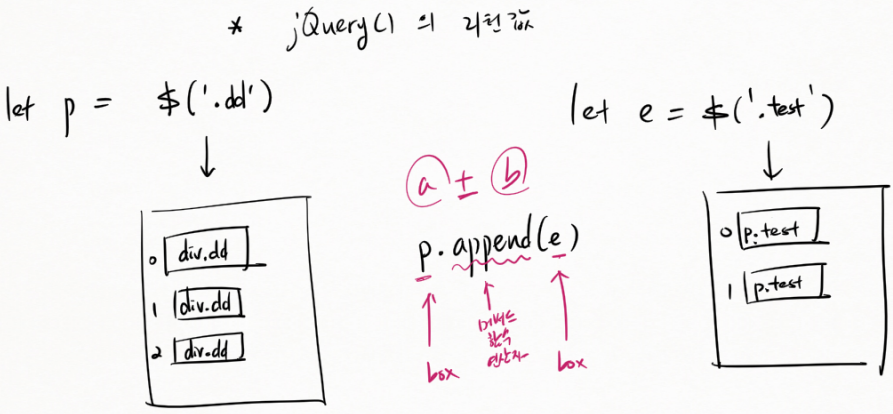 * jQuery() 의 리턴값
let p = $('.dd')
let e = $('.test')
0 div.dd
1 div.dd
2 div.dd
a + b
p.append(e)
box
메서드
함수
연산자
box
0 p.test
1 p.test